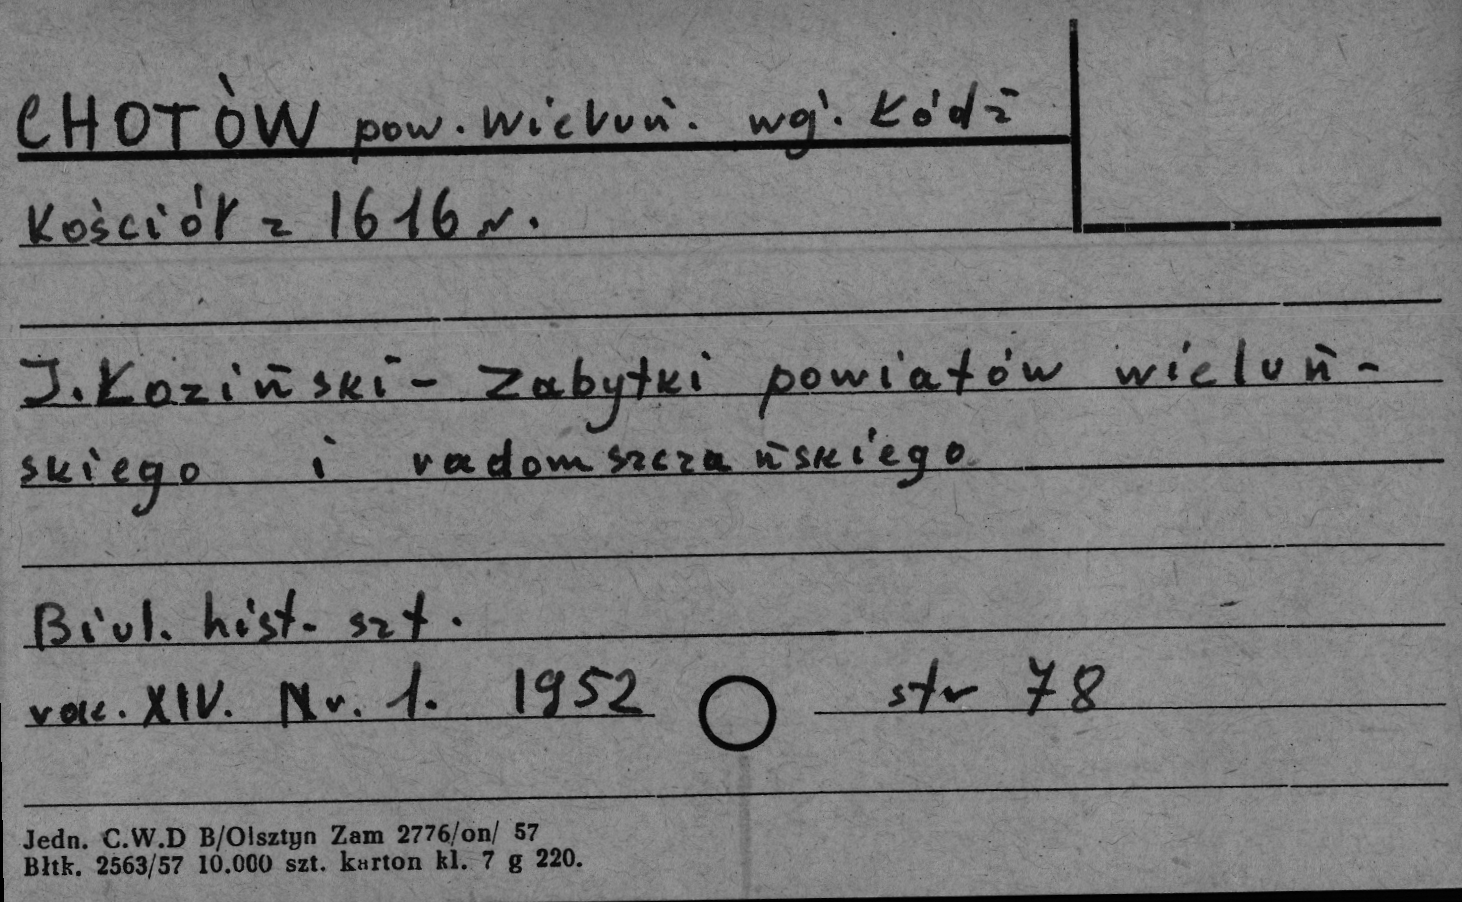 CHOTÓW pow. Wieluń. wg. Łódź
Kościół z 1616 r.
J. Łoziński - Zabytki powiatów wieluń-
skiego i radomszczańskiego
Biul. hist. szt.
roc. XIV. Nr. 1. 1952 str 78
Jedn. C.W.D B/Olsztyn Zam 2776/on/ 57
Błtk. 2563/57 10.000 szt. karton kl. 7 g 220.